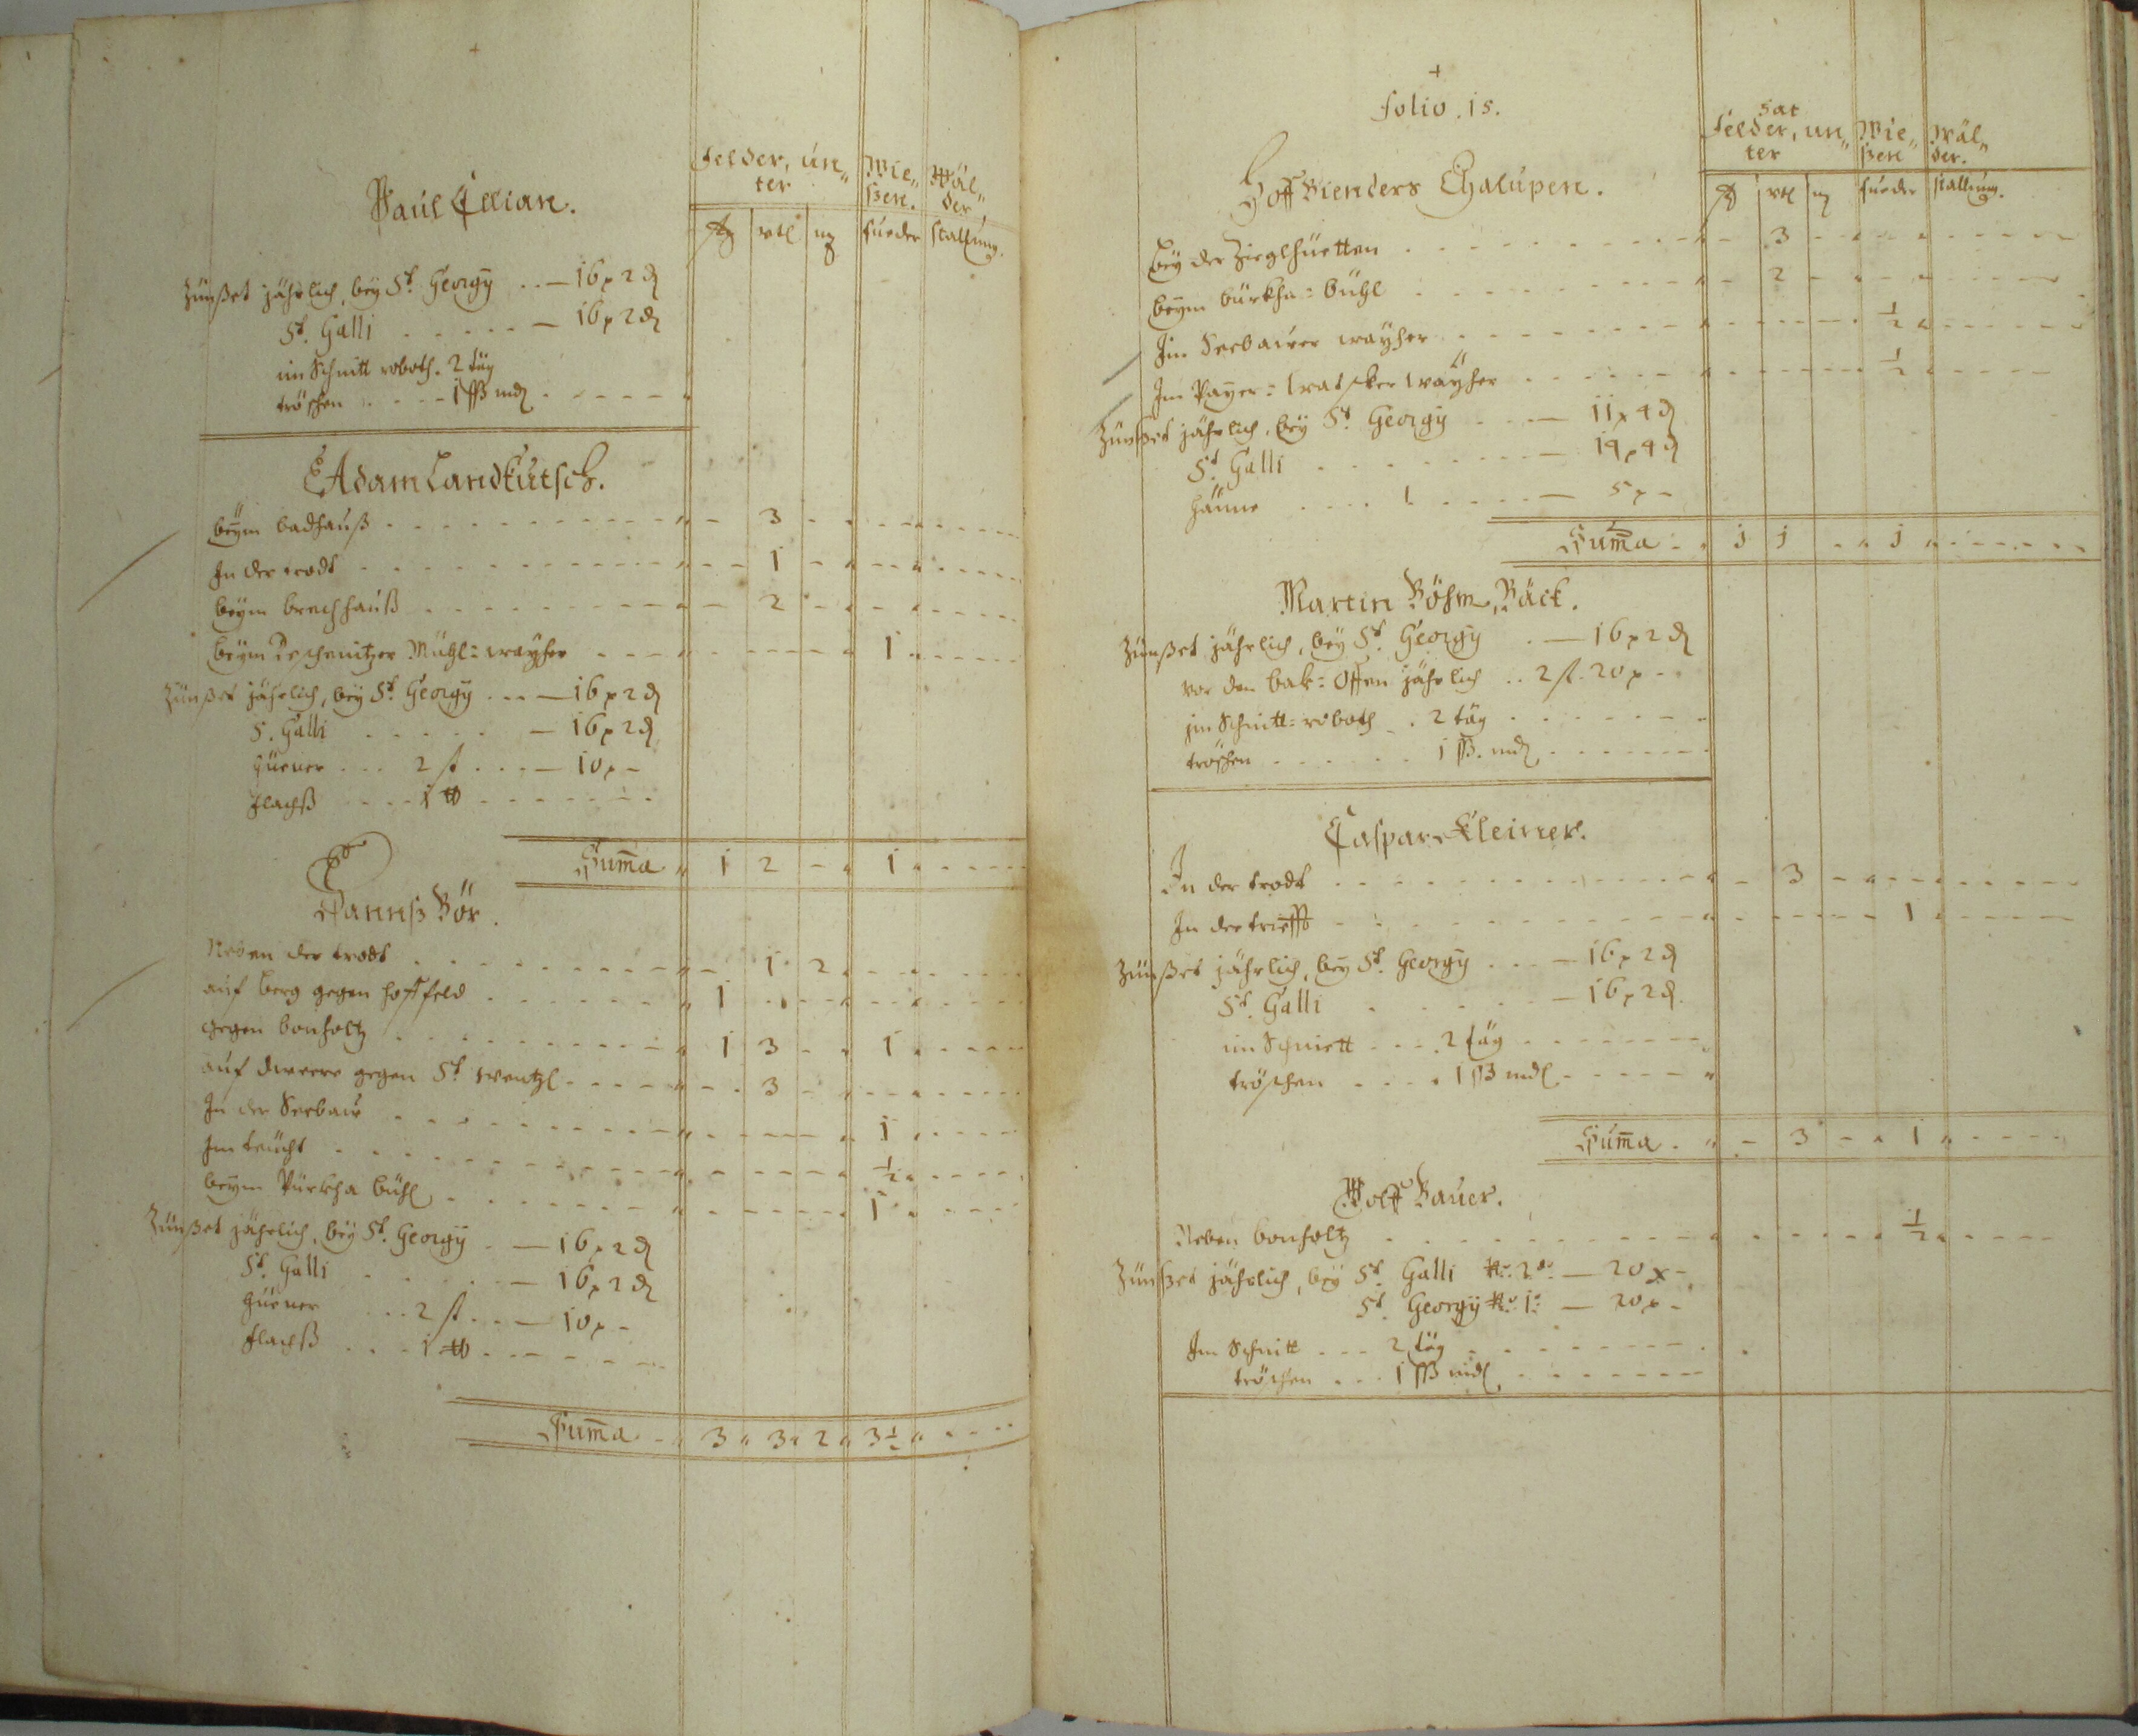 Felder, un„ Wie„ Wäl„
ter ßen. der,
Paul Kilian.
vtl fueder stallung.
Zünßet jährlich, bey St. Georgÿ .. — 16 x 2 ₰
St. Galli . . . . . — 16 x 2 ₰
im Schnitt roboth. 2 täg
tröschen . . . . 1 ßß mdl
Adam Landkutsch.
beÿm badhauß 3
In der tradt 1
beÿm brechhauß 2
beÿm Mühl=wayher 1
Zünßet jährlich, bey St. Georgÿ . . . — 16 x 2 ₰
S. Galli . . . . . — 16 x 2 ₰
hüener . . . 2 st . . . — 10 x –
Flachß . . . . 1 ℔
Suma 1 2 – 1
Hannß Bör.
Neben der tradt 1 2
auf berg gegen hoffeld 1
gegen bonholtz 1 3 – 1
auf gegen St. wentzl 3
In der Seebaur 1
Im 1/2
beÿm Pürkha bühl 1
Zünßet jährlich, bey St. Georgÿ . — 16 x 2 ₰
St. Galli . . . . — 16 x 2 ₰
hüener . . . 2 st . . . — 10 x –
Flachß . . . 1 ℔
Suma 3 3 2 3 1/2
folio. 15.
Hat
Felder, un„ Wie„ Wäl„
ter ßen der.
Hoff Bienders Chalupen.
vtl fueder stallung.
beÿ der Zieglhüetten 3
beÿm bürkha= bühl 2
Im Seebaurer wayher 1/2
Im Payer= wayher 1/2
Zünßet jährlich, beÿ St. Georgÿ . . . — 11 x 4 ₰
St. Galli . . . . . — 14 x 4 ₰
hänne . . . . 1 . . . . — 5 x –
Suma 1 1 – 1
Martin Böhm, Bäck.
Zünßet jährlich, beÿ St. Georgÿ . — 16 x 2 ₰
vor den bak= Offen jährlich . . 2 f. 20 x –
im Schnitt= roboth . 2 täg
tröschen . . . . . . 1 ßß. mdl
Caspar Kleiner.
In der tradt 3
In der triefft 1
Zünßet jährlich, beÿ St. Georgÿ . . . — 16 x 2 ₰
St. Galli . . . . . — 16 x 2 ₰.
im Schnitt . . . . 2 täg
tröschen . . . . 1 ßß mdl
Suma . – 3 – 1
Wolff Bauer.
Neben bonholtz 1/2
Zünßet jährlich, beÿ St. Galli 2 — 20 x –
St. Georgÿ 1 — 20 x –
Im Schnitt . . . 2 täg
tröschen . . . 1 ßß mdl